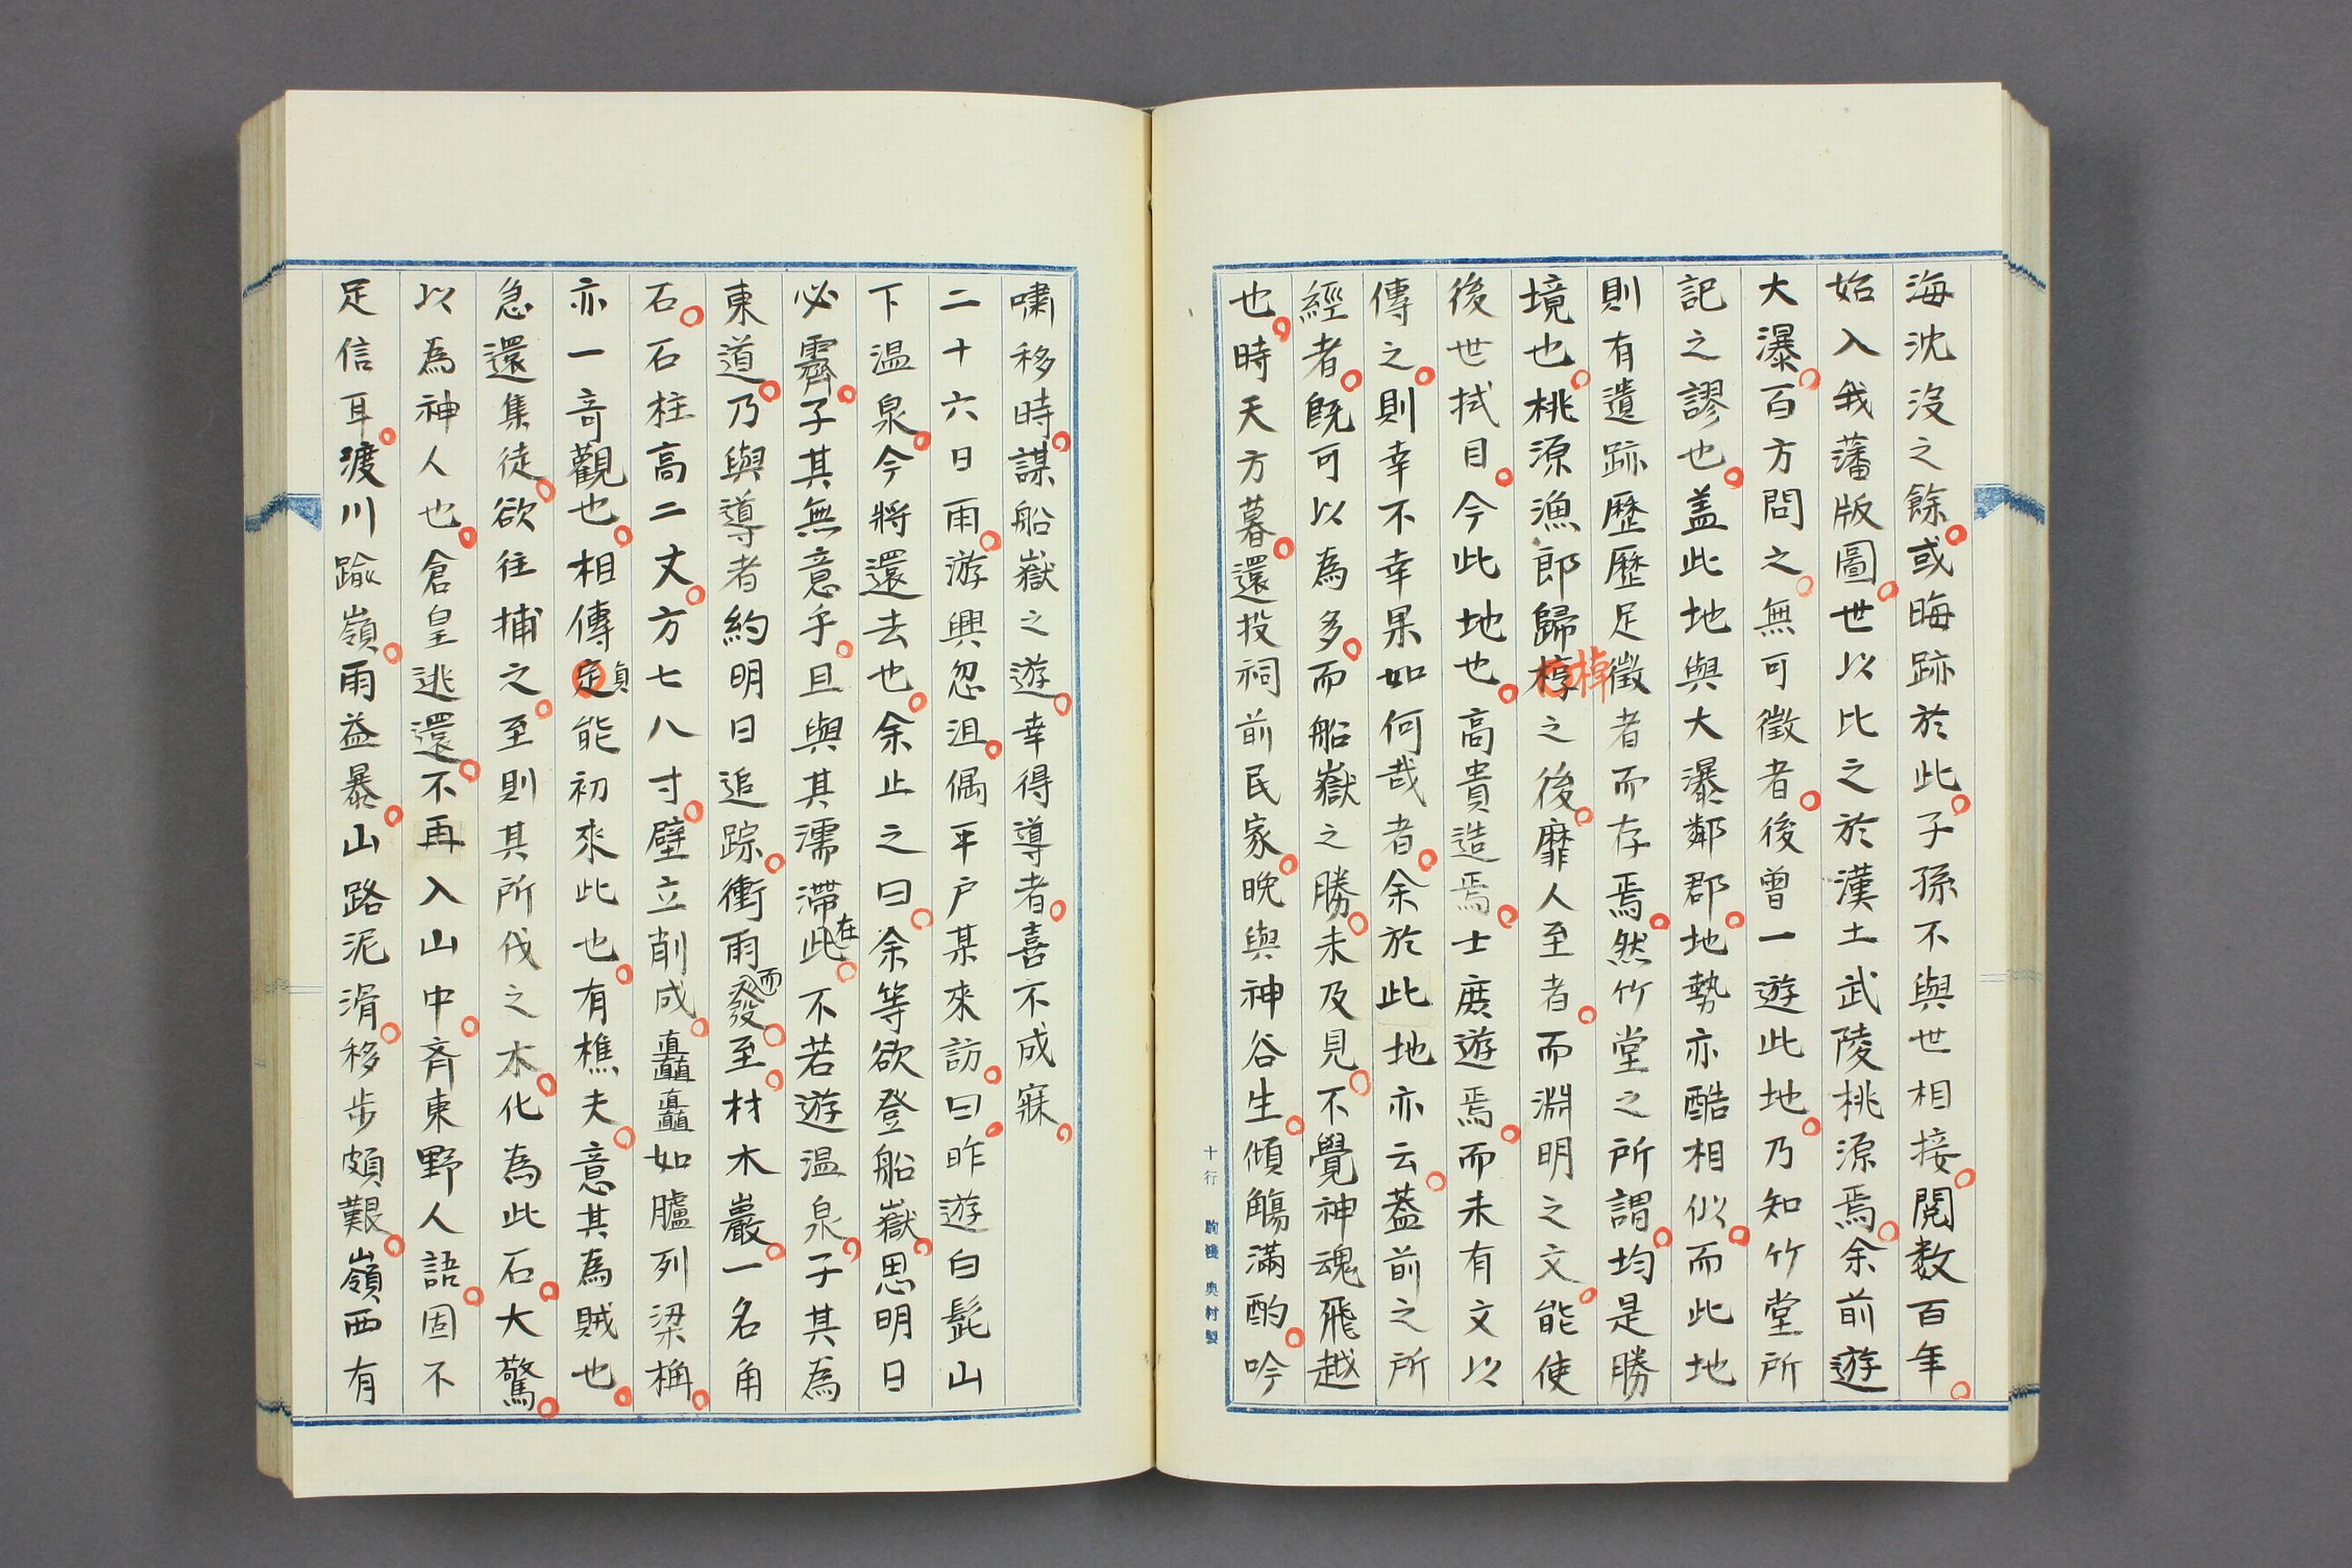 海沈沒之餘。或晦跡於此。子孫不與世相接。閱数百年。
始入我藩版圖。世以比之於漢土武陵桃源焉。余前遊
大瀑。百方問之。無可徵者。後曾一遊此地。乃知竹堂所
記之謬也。盖此地與大瀑鄰郡。地勢亦酷相似。而此地
則有遺跡歷歷足徵者而存焉。然竹堂之所謂。均是勝
境也。桃源漁郎歸椁棹之後。靡人至者。而淵明之文。能使
後世拭目。今此地也。高貴造焉。士庶遊焉。而未有文以
傳之。則幸不幸果如何哉者。余於此地亦云。蓋前之所
經者。既可以為多。而船嶽之勝。未及見。不覺神魂飛越
也。時天方暮。還投祠前民家。晚與神谷生。傾觴滿酌。吟
十行 駒込 奥村製
嘯移時。謀船嶽之遊。幸得導者。喜不成寐。
二十六日雨。游興忽沮。偶平戶某來訪。曰。昨遊白髭山
下温泉。今將還去也。余止之曰。余等欲登船嶽。思明日
必霽。子其無意乎。且與其濡滯在此。不若遊温泉。子其為
東道。乃與導者約明日追踪。衝雨而發。至材木巖。一名角
石。石柱高二丈。方七八寸。壁立削成。矗矗如臚列梁桷。
亦一奇觀也。相傳定貞能初來此也。有樵夫。意其為賊也。
急還集徒。欲往捕之。至則其所伐之木。化為此石。大驚。
以為神人也。倉皇逃還。不再入山中。斉東野人語。固不
足信耳。渡川踰嶺。雨益暴。山路泥滑。移步頗艱。嶺西有